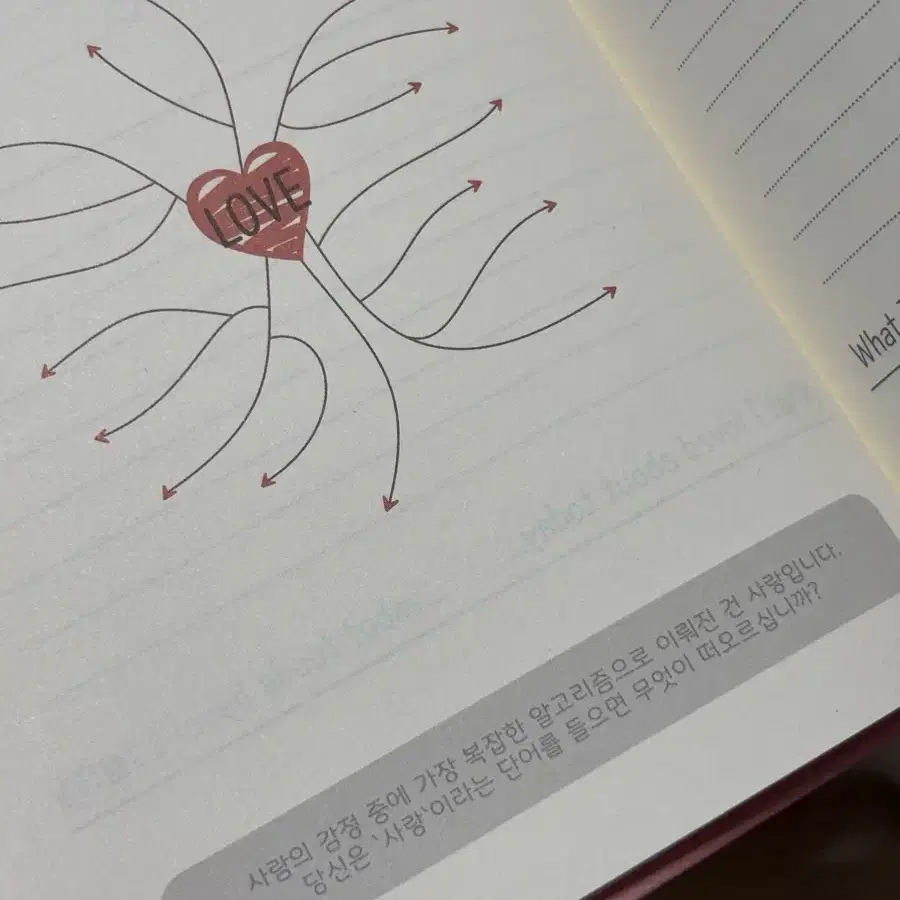 LOVE
What
사람의 감정 중에 가장 복잡한 알고리즘으로 이뤄진 건 사랑입니다.
당신은 `사랑`이라는 단어를 들으면 무엇이 떠오르십니까?